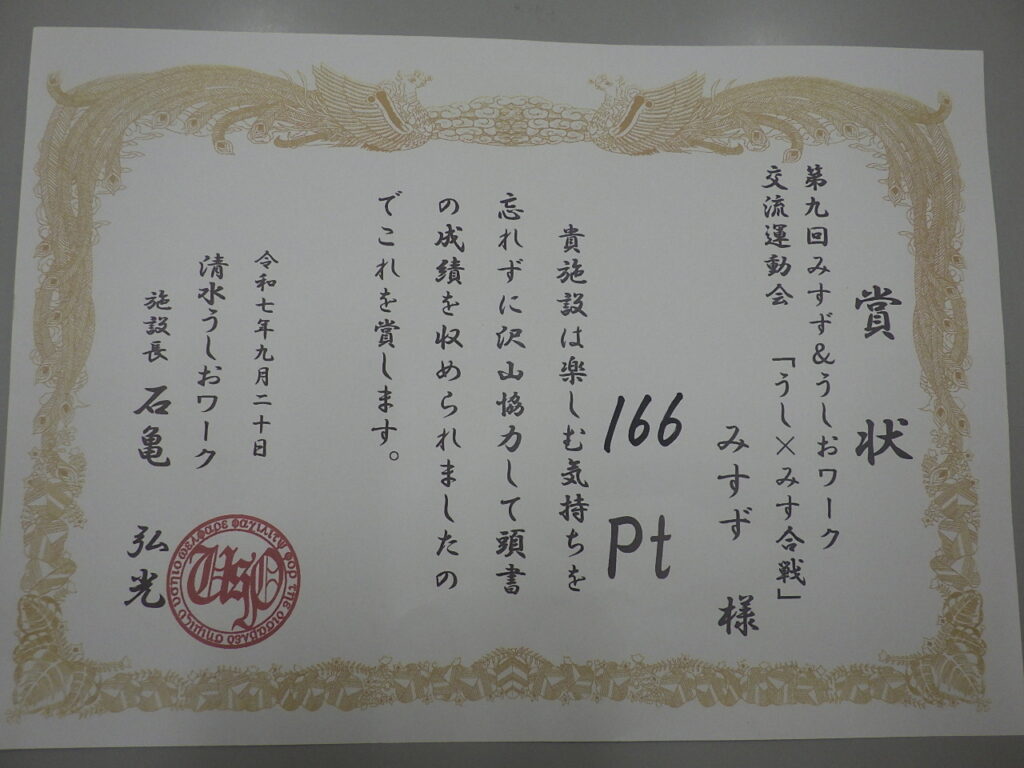 賞状
第九回みすず&うしおワーク
交流運動会 「うし×みす合戦」
みすず 様
166 Pt
貴施設は楽しむ気持ちを
忘れずに沢山協力して頭書
の成績を収められましたの
でこれを賞します。
令和七年九月二十日
清水うしおワーク
施設長 石亀 弘光